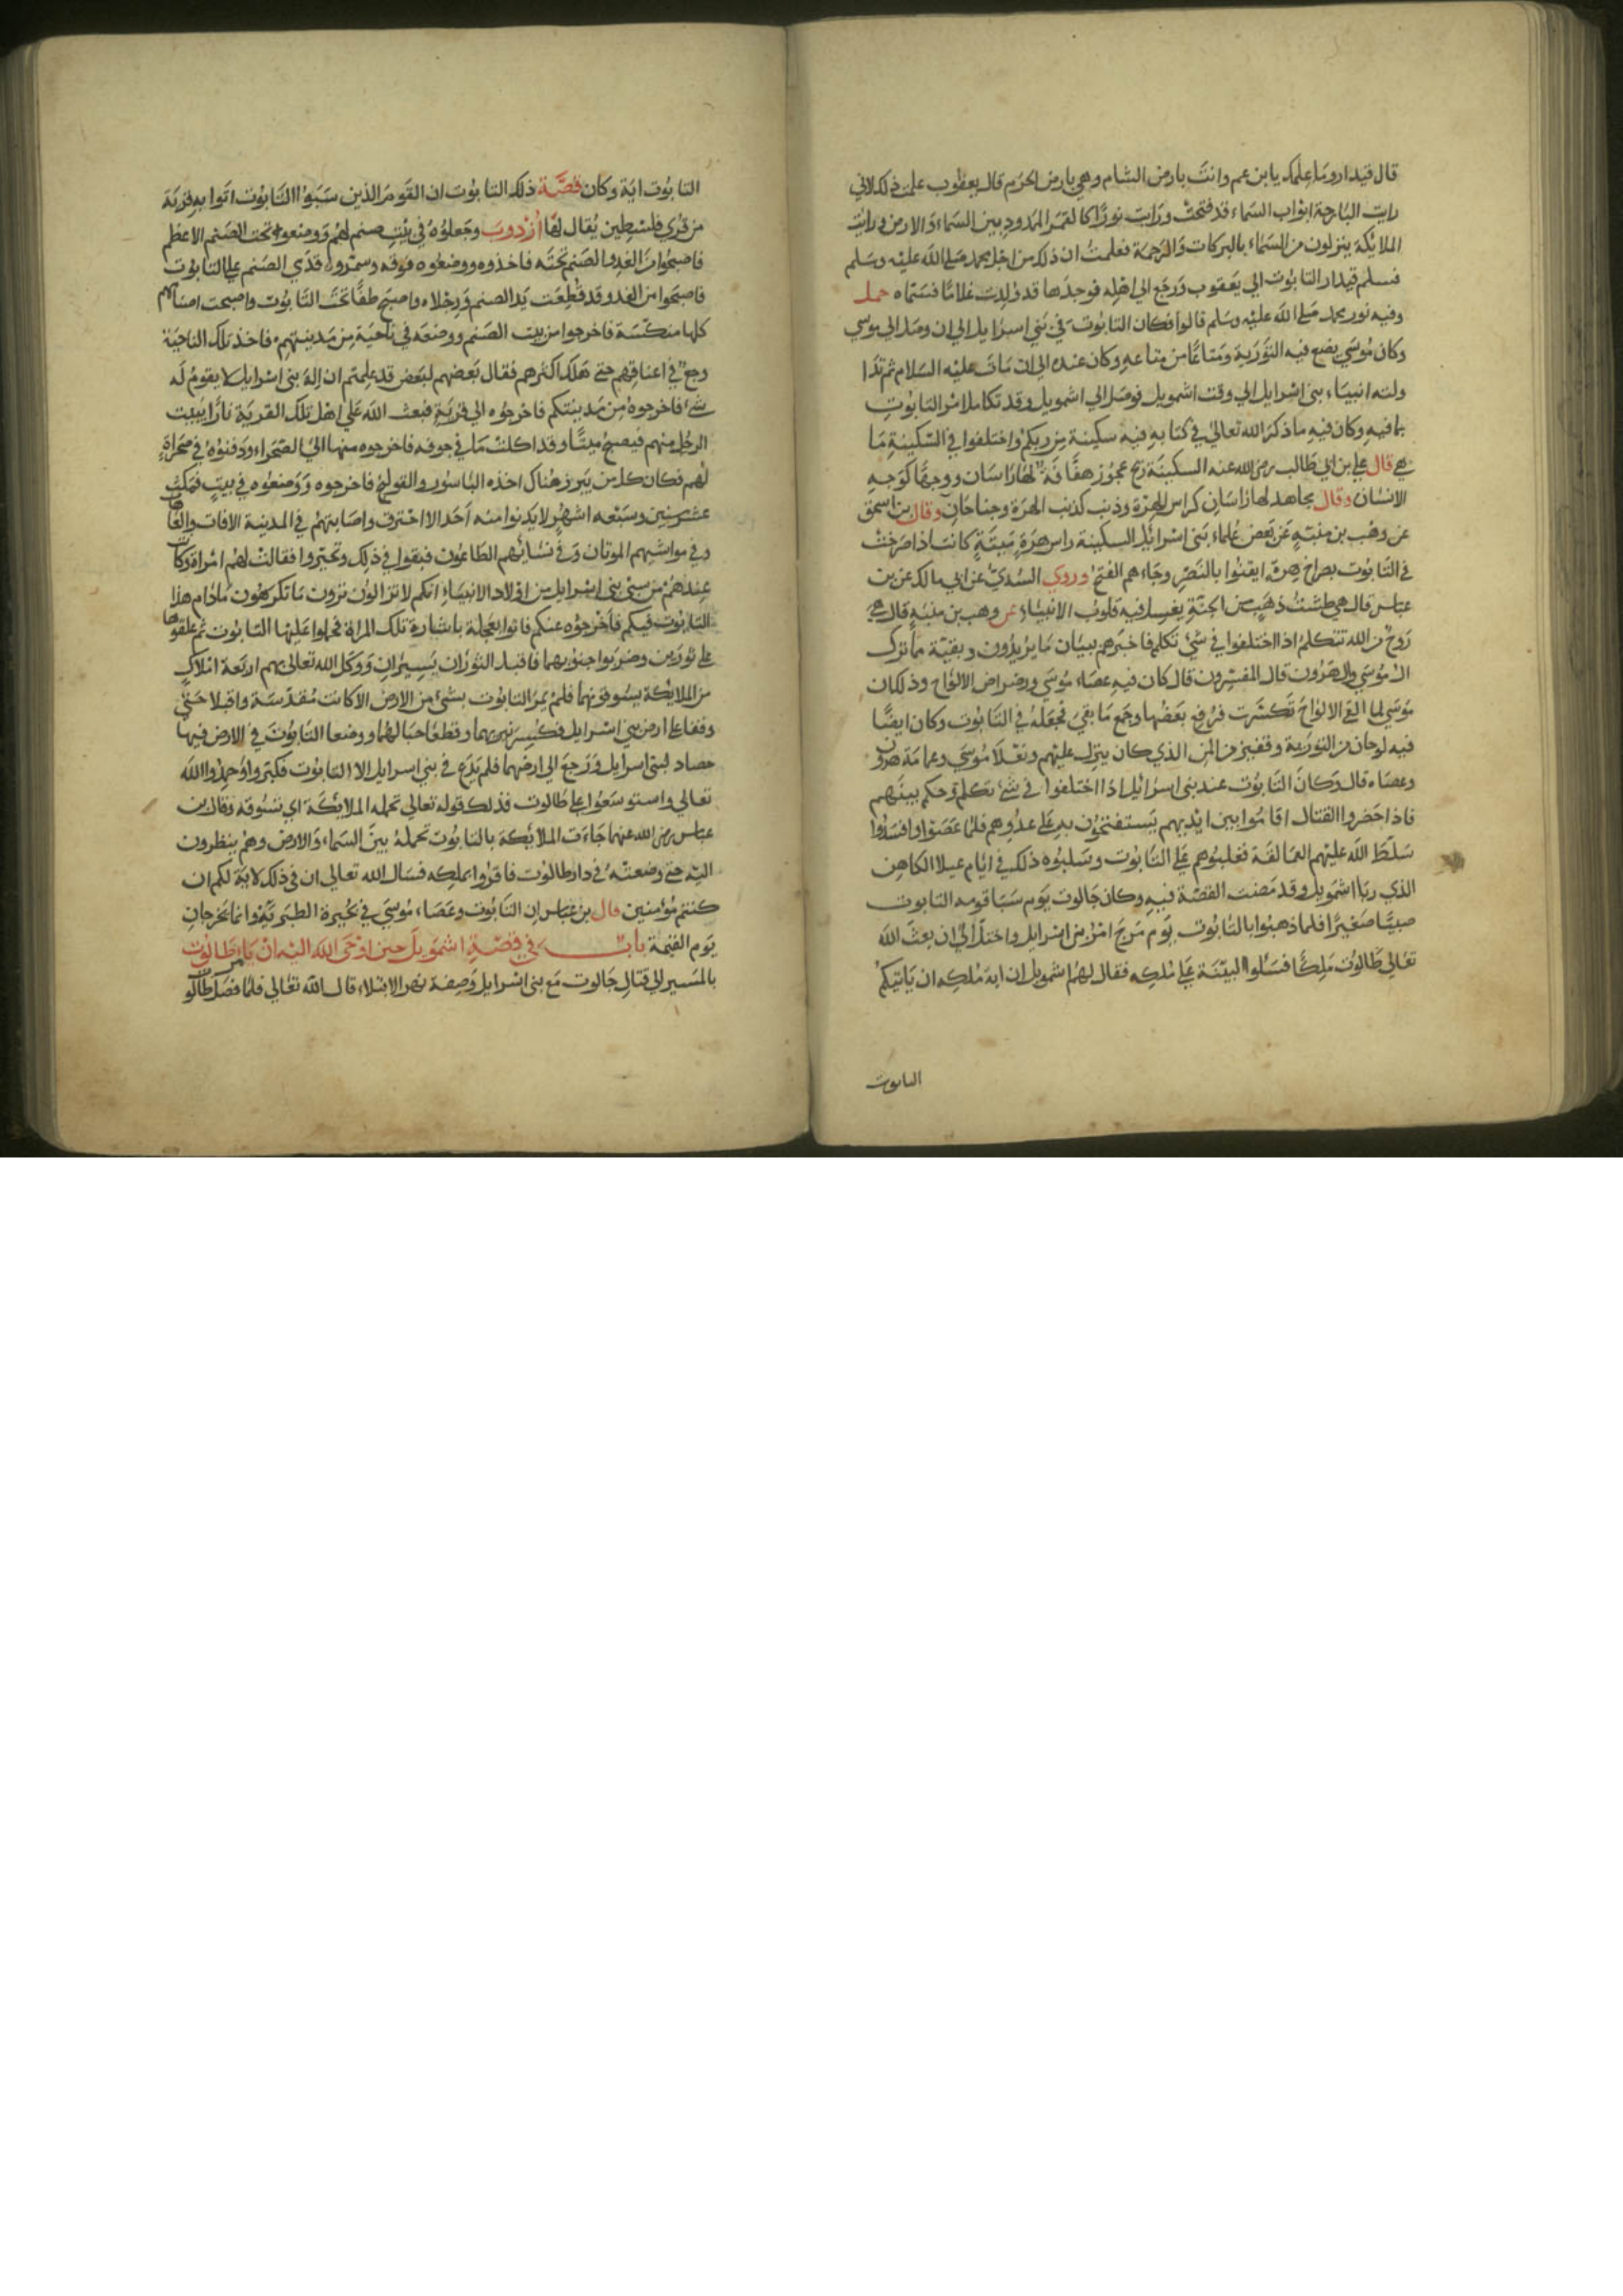 قال قيدار وما علمك يا بن عم وانت بارض الشام وهي بارض الحرم قال يعقوب علمت ذلك لاني
رايت البارحة ابواب السماء قد فتحت ورايت نورا كالقمر الممدود بين السماء والارض ورايت
الملايكة ينزلون من السماء بالبركات والرحمة فعلمت ان ذلك من اجل محمد صلى الله عليه وسلم
فسلم قيدار التابوت الي يعقوب ورجع الي اهله فوجدها قد ولدت غلاما فسماه حمل
وفيه نور محمد صلى الله عليه وسلم قالوا فكان التابوت في بني اسرايل الي ان وصل الي موسي
وكان موسي يضع فيه التورية ومتاعا من متاعه وكان عنده الي ان مات عليه السلام ثم تدا
ولته انبياء بني اسرايل الي وقت اشمويل فوصل الي اشمويل وقد تكامل امر التابوت
بما فيه وكان فيه ما ذكر الله تعالي في كتابه فيه سكينة من ربكم واختلفوا في السكينة ما
هي قال علي بن ابي طالب رضى الله عنه السكينة ريح عجوز هفافة لها راسان ووجها كوجه
الانسان وقال مجاهد لها راسان كراس الهرة وذنب كذنب الهرة وجناحان وقال بن اسحق
عن وهب بن منبه عن بعض علماء بني اسرائل السكينة راس هرة ميتة كانت اذا صرخت
في التابوت بصراخ هرة ايقنوا بالنصر وجاءهم الفتح وروي السدي عن ابي مالك عن بن
عباس قال هي طشت ذهب من الجنة يغسل فيه قلوب الانبياء عن وهب بن منبه قال هي
روح من الله تتكلم اذا اختلفوا في شي تكلم فاخبرهم ببيان ما يريدون وبقية مما ترك
ال موسي وال هرون قال المفسرون قال كان فيه عصاء موسي ورضراض الالواح وذلك ان
موسي لما القي الالواح تكسرت فرفع بعضها وجمع ما بقي فجعله في التابوت وكان ايضا
فيه لوحان من التورية وقفيز من المن الذي كان ينزل عليهم ونعلا موسي وعمامة هرون
وعصاه قال وكان التابوت عند بني اسرائل اذا اختلفوا في شي تكلم وحكم بينهم
فاذا حضروا القتال اقاموا بين ايديهم يستفتحون به على عدوهم فلما عصوا وافسدوا
سلط الله عليهم العمالقة فغلبوهم علي التابوت وسلبوه ذلك في ايام عيلا الكاهن
الذي ربا اشمويل وقد مضت القصة فيه وكان جالوت يوم سبا قومه التابوت
صبيا صغيرا فلما ذهبوا بالتابوت يوم مرج امر بن اسرايل واختل الي ان بعث الله
تعالي طالوت ملكا فسالوا البينة علي ملكه فقال لهم اشمويل ان اية ملكه ان ياتيكم
التابوت
التابوت اية وكان قصة ذلك التابوت ان القوم الذين سبوا التابوت اتوا به قرية
من قري فلسطين يقال لها ازدوب وجعلوه في بيت صنم لهم ووضعوه تحت الصنم الاعظم
فاصبحوا من الغد والصنم تحته فاخذوه ووضعوه فوقه وسمروا قدمي الصنم علي التابوت
فاصبحوا من الغد وقد قطعت يد الصنم ورجلاه واصبح تحت التابوت واصبحت اصنامهم
كلها منكسة فاخرجوا من بيت الصنم ووضعه في ناحية من مدينتهم فاخذ تلك الناحية
وجع في اعناقهم حتي هلك اكثرهم فقال بعضهم لبعض قد علمتم ان اله بني اسرايل لا يقوم له
شي فاخرجوه من مدينتكم فاخرجوه الي قرية فبعث الله علي اهل تلك القرية فارا يبيت
الرجل منهم فيصبح ميتا وقد اكلت ما في جوفه فاخرجوه منها الي الصحراء ودفنوه في مخراة
لهم فكان كل من يبرز هناك اخذه الباسور والقولنج فاخرجوه ووضعوه في بيت فمكث
عشر سنين وسبعه اشهر لا يدنوا منه احد الا احترق واصابتهم في المدينة الافات والعاهات
وفي مواشيهم الموتان وفي نسائهم الطاعون فبقوا في ذلك وتحيروا فقالت لهم امراة وكانت
عندهم من سبي بني اسرايل من اولاد الانبياء انكم لا تزالون ترون ما تكرهون مادام هذا
التابوت فيكم فاخرجوه عنكم فاتوا بعجلة باشارة تلك المراة فحملوا عليها التابوت ثم علقوها
علي ثورين وضربوا جنوبهما فاقبل الثوران يسيران ووكل الله تعالي بهم اربعة املاك
من الملايكة يسوقونهما فلم يمر التابوت بشي من الارض الا كانت مقدسة واقبلا حتي
وقفا علي ارض بني اسرايل فكسر نيريهما وقطعا حبالهما ووضعا التابوت في الارض فيها
حصاد لبني اسرايل ورجع الي ارضهما فلم يدع في بني اسرايل الا التابوت فكبروا وحمدوا الله
تعالي واستوسعوا علي طالوت فذلك قوله تعالي تحمله الملايكة اي تسوقه وقال بن
عباس رضى الله عنهما جاءت الملايكة بالتابوت تحمله بين السماء والارض وهم ينظرون
اليه حتي وضعته في دار طالوت فاقروا بملكه فقال الله تعالي ان في ذلك لاية لكم ان
كنتم مؤمنين قال بن عباس ان التابوت وعصاء موسي في بحيرة الطبرية وانما يخرجان
يوم القيمة باب في قصة اشمويل حين اوحى الله اليه ان يامر طالوت
بالمسير الي قتال جالوت مع بني اسرايل وصفة نهر الابتلاء قال الله تعالي فلما فصل طالوت